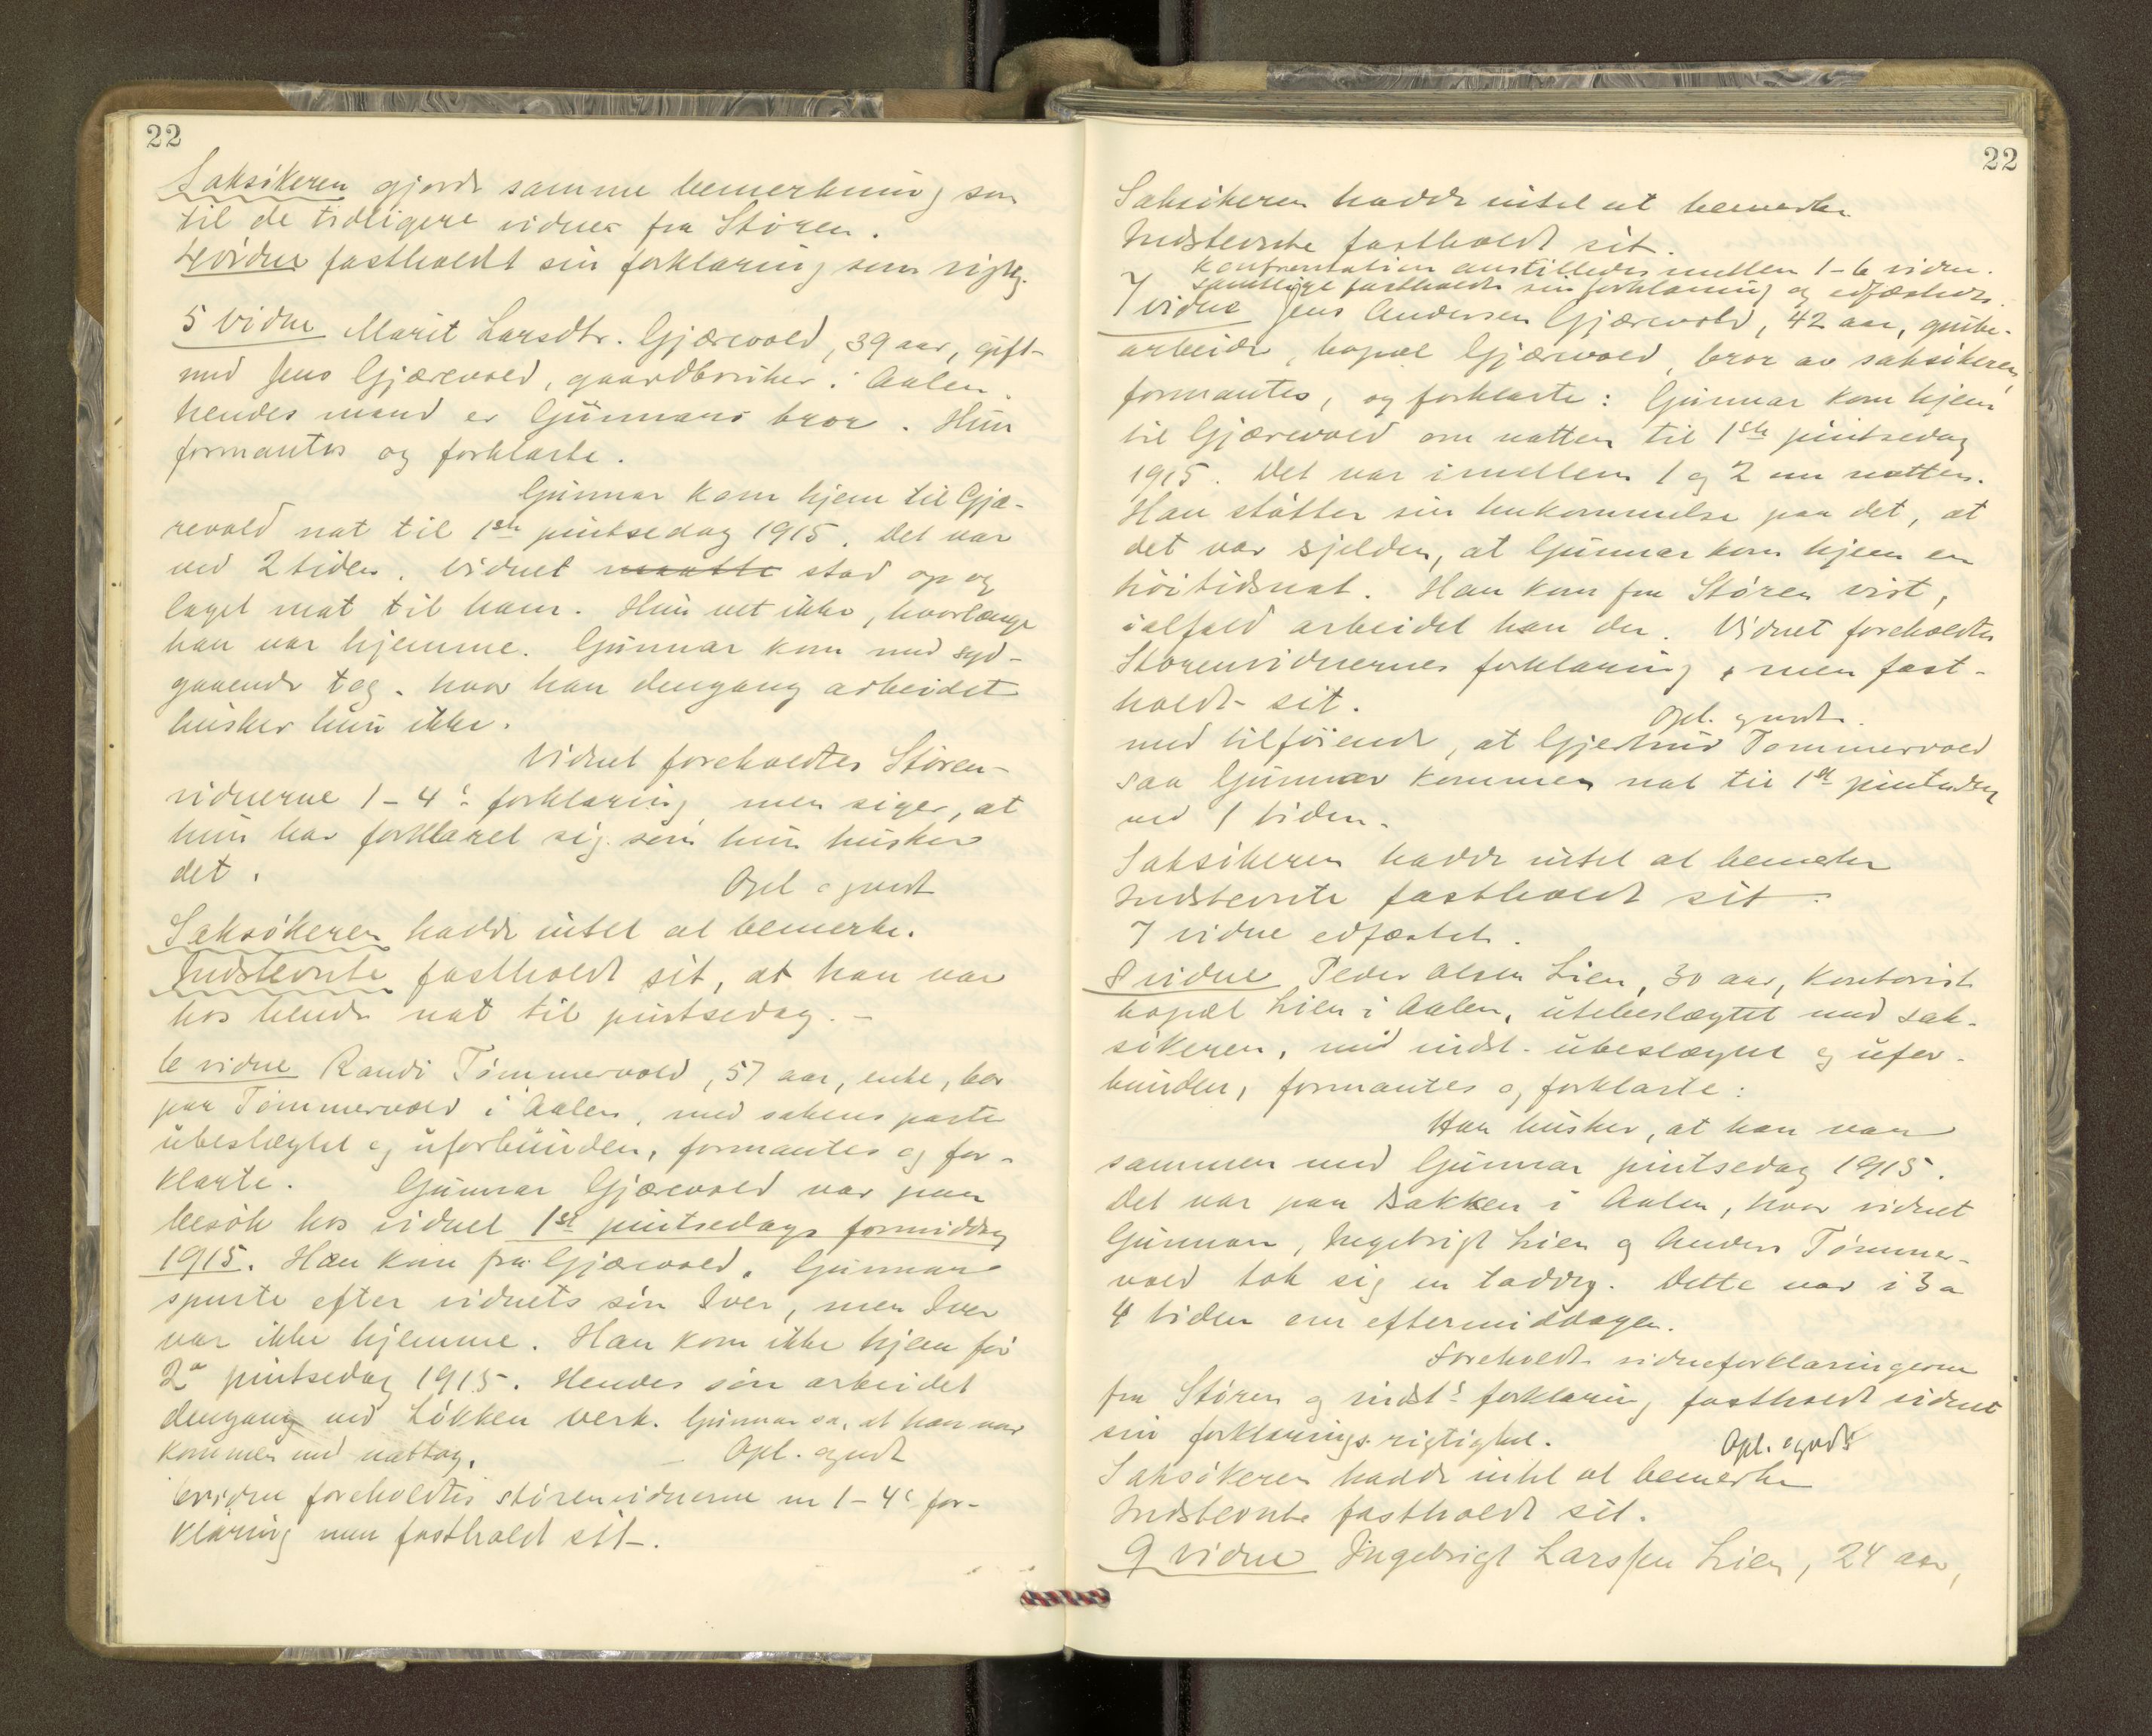 22
Saksökeren gjorde samme bemerkning som
til de tidligere vidner fra Støren.
4 vidne fastholdt sin forklaring som rigtig.
5 vidne Marit Larsdtr. Gjærevold, 39 aar, gift
med Jens Gjærevold, gaardbruker i Aalen
hendes mand er Gunnars bror. Hun
formantes og forklarte.
Gunnar kom hjem til Gjæ-
revold nat til 1ste pintsedag 1915. Det var
ved 2 tiden. Vidnet maatte stod op og
laget mat til ham. Hun vet ikke, hvorlænge
han var hjemme. Gunnar kom med syd-
gaaende tog. hvor han dengang arbeidet
husker hun ikke.
Vidnet foreholdtes Støren-
vidnerne 1-4s forklaring men siger, at
hun har forklaret sig som hun husker
det.
Opl. og vedt
Saksökeren hadde intet at bemerke.
Indstevnte fastholdt sit, at han var
hos hende nat til pintsedag. -
6 vidne Randi Tømmervold, 57 aar, enke, bor
paa Tømmervold i Aalen, med sakens parter
ubeslægtet og uforbunden, formantes og for-
klarte. Gunnar Gjærevold var paa
besøk hos vidnet 1ste pintsedags formiddag
1915. Han kom fra Gjærevold. Gunnar
spurte efter vidnets søn Iver, men Iver
var ikke hjemme. Han kom ikke hjem før
2n pintsedag 1915. Hendes søn arbeidet
dengang ved Løkken verk. Gunnar sa, at han var
kommen med nattog. Opl. og vedt
6 vidne foreholdtes størenvidnerne nr 1-4s for-
klaring men fastholdt sit.
22
Saksökeren hadde intet at bemerke
Indstevnte fastholdt sit.
Konfrontation anstilledes mellem 1-6 vidne.
Samtlige fastholdt sin forklaring og edfæstedes.
7 vidne Jens Andersen Gjærevold, 42 aar, grube-
arbeider, bopæl Gjærevold, bror av saksökeren,
formantes, og forklarte: Gunnar kom hjem
til Gjærevold om natten til 1ste pintsedag
1915. Det var imellem 1 og 2 om natten.
Han støtter sin hukommelse paa det, at
det var sjelden, at Gunnar kom hjem en
höitidsnat. Han kom fra Støren vist,
ialfald arbeidet han der. Vidnet foreholdtes
Størenvidnernes forklaring, men fast-
holdt sit.
Opl. og vedt.
med tilföiende, at Gjertrud Tømmervold
saa Gunnar kommen nat til 1ste pintsedag
ved 1 tiden.
Saksökeren hadde intet at bemerke
Indstevnte fastholdt sit.
7 vidne edfæstet.
8 vidne Peder Olsen Lien, 30 aar, kontorist
bopæl Lien i Aalen, utebeslægtet med sak-
sökeren, med indst. ubeslægtet og ufor-
bunden, formantes og forklarte:
Han husker, at han var
sammen med Gunnar pintsedag 1915.
Det var paa Bakken i Aalen, hvor vidnet
Gunnar, Ingebrigt Lien og Anders Tømmer-
vold tok sig en toddy. Dette var i 3 a
4 tiden om eftermiddagen.
Foreholdt vidneforklaringerne
fra Støren og indsts forklaring fastholdt vidnet
sin forklarings rigtighet.
Opl. og vedt
Saksökeren hadde intet at bemerke
Indstevnte fastholdt sit.
9 vidne Ingebrigt Larssen Lien, 24 aar,